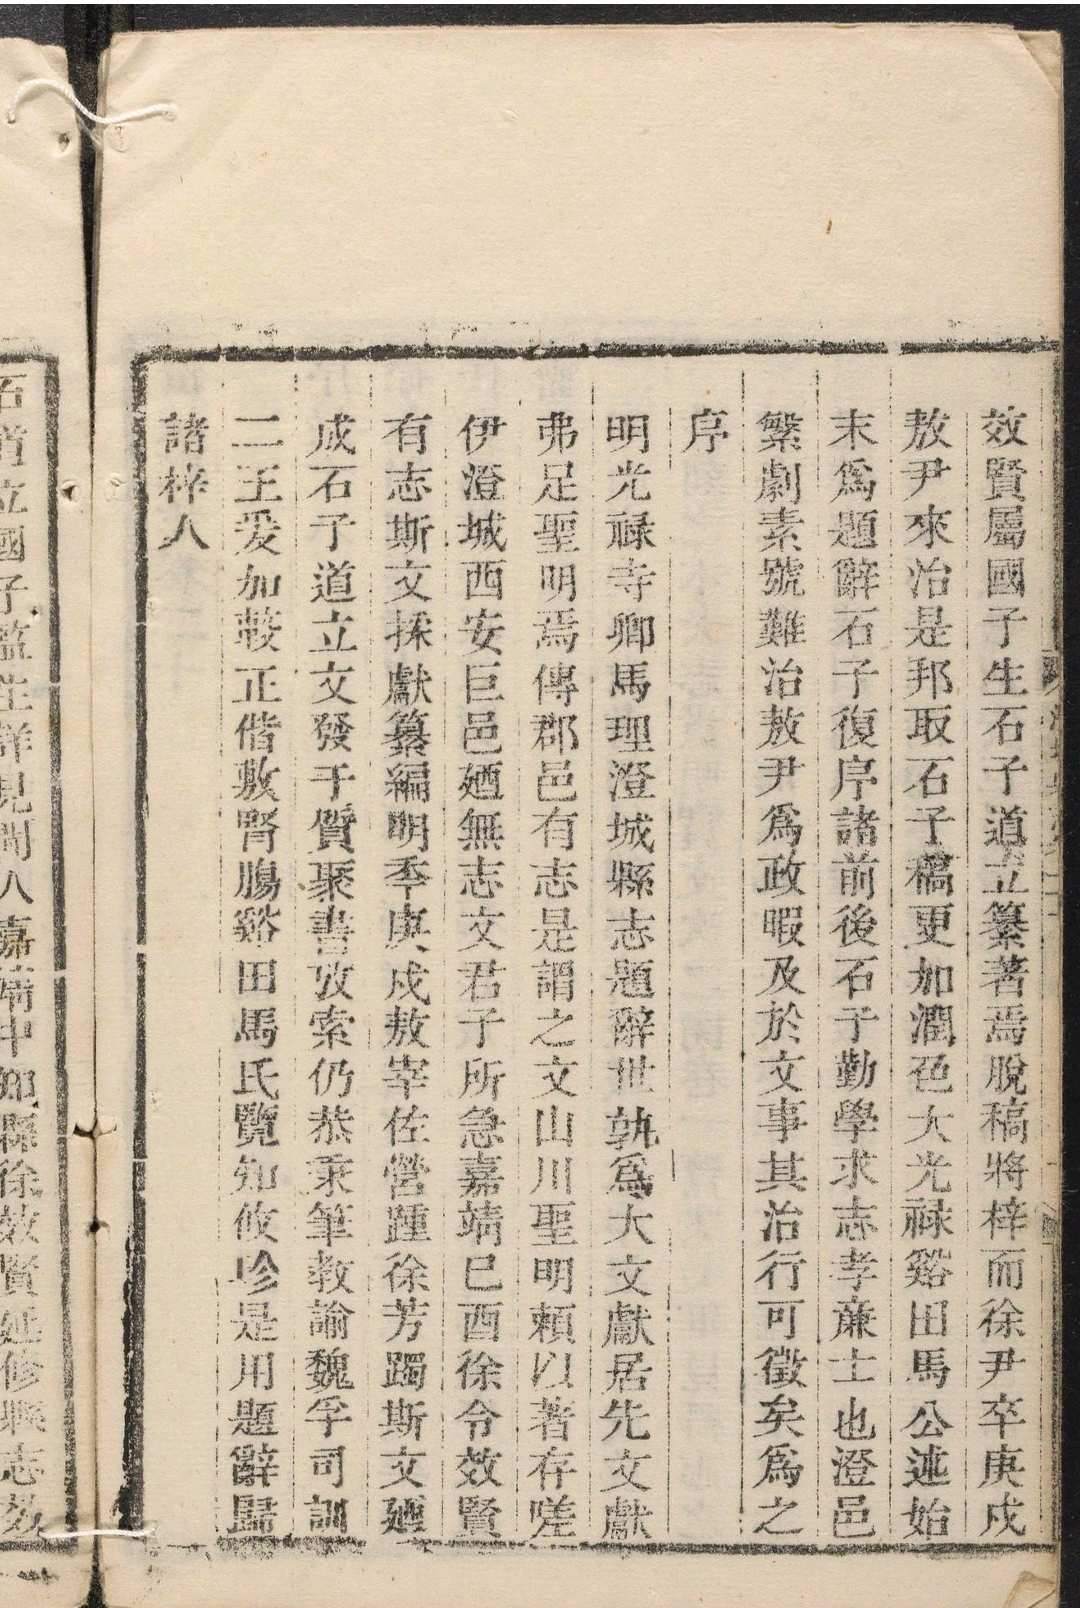 效賢屬國子生石子道立纂著焉脫稿將梓而徐尹卒庚戍
敖尹來治是邦取石子稿更加潤色大光祿谿田馬公述始
末爲題辭石子復序諸前後石子勤學求志孝亷士也澄邑
繁劇素號難治敖尹爲政暇及於文事其治行可徵矣爲之
序
明光祿寺卿馬理澄城縣志題辭世孰爲大文獻居先文獻
弗足聖明焉傳郡邑有志是謂之文山川聖明賴以著存嗟
伊澄城西安巨邑廼無志文君子所急嘉靖巳酉徐令效賢
有志斯文採獻纂編明季庚戍敖宰佐營踵徐芳躅斯文廼
成石子道立文發于質聚書攷索仍恭秉筆教諭魏孚司訓
二王爰加較正偕敷腎腸谿田馬氏覽知攸珍是用題辭歸
諸梓人
石道立國子監生詳見聞人嘉靖中知縣徐效賢延修縣志